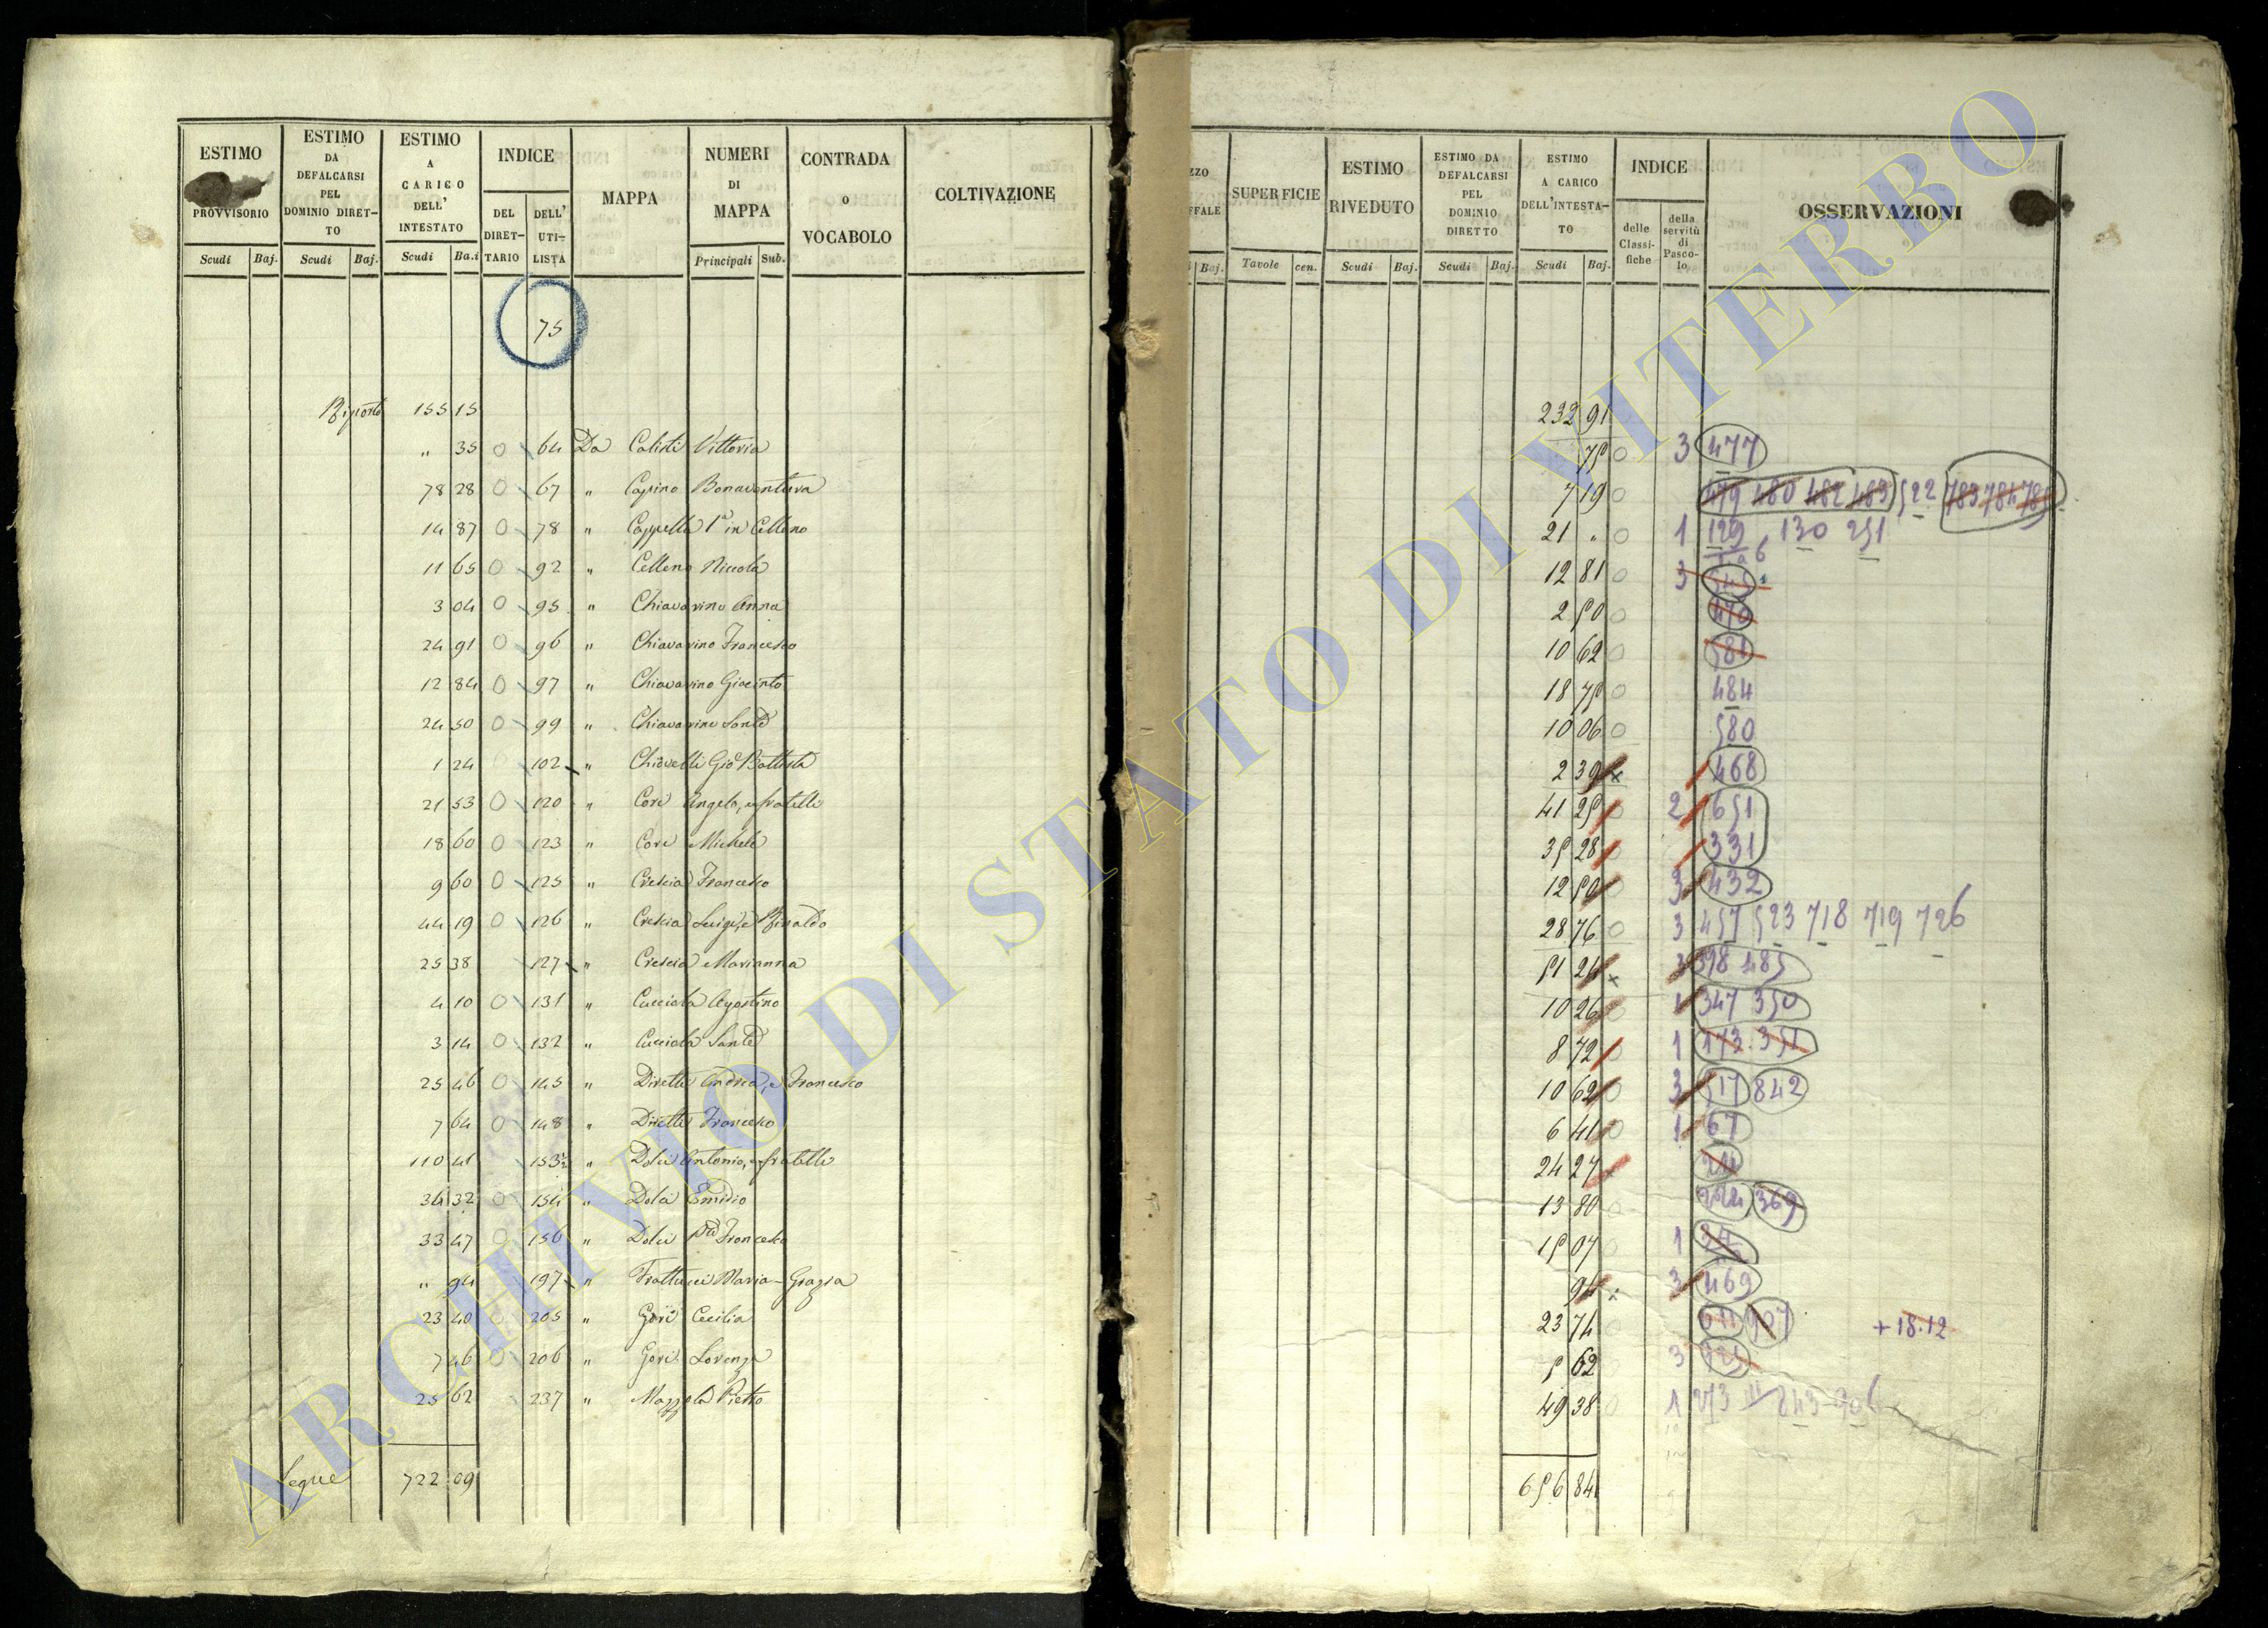 ESTIMO PROVVISORIO
ESTIMO DA DEFALCARSI PEL DOMINIO DIRET-TO
ESTIMO A CARICO DELL' INTESTATO
INDICE
DEL DIRET-TARIO
DELL' UTI-LISTA
MAPPA
NUMERI DI MAPPA
CONTRADA o VOCABOLO
COLTIVAZIONE
Scudi Baj. Scudi Baj. Scudi Ba.i Principali Sub.
75
Riporto 155 15
" 35 0 64 Da Calisti Vittoria
78 28 0 67 " Caprino Bonaventura
14 87 0 78 " Cappella 1a in Celleno
11 65 0 92 " Celleno Niccola
3 04 0 95 " Chiavarino Anna
24 91 0 96 " Chiavarino Francesco
12 84 0 97 " Chiavarino Giacinto
24 50 0 99 " Chiavarino Sante
1 24 102 " Chiovelli Gio Battista
21 53 0 120 " Cori Angelo, e fratelli
18 60 0 123 " Cori Michele
9 60 0 125 " Crescia Francesco
44 19 0 126 " Crescia Luigi, e Rinaldo
25 38 127 " Crescia Marianna
4 10 0 131 " Cucciola Agostino
3 14 0 132 " Cucciola Sante
25 46 0 145 " Diretti Andrea, e Francesco
7 64 0 148 " Diretti Francesco
110 41 153½ " Dolci Antonio, e fratelli
34 32 0 154 " Dolci Emidio
33 47 0 156 " Dolci Francesco
" 94 197 " Frattucci Maria-Grazia
23 40 0 205 " Gori Cecilia
7 46 0 206 " Gori Lorenzo
25 62 237 " Mazzola Pietro
Segue 722 09
ZZO
FFALE
SUPERFICIE
ESTIMO RIVEDUTO
ESTIMO DA DEFALCARSI PEL DOMINIO DIRETTO
ESTIMO A CARICO DELL'INTESTA-TO
INDICE
delle Classi-fiche
della servitù di Pasco-lo
OSSERVAZIONI
i Baj. Tavole cen. Scudi Baj. Scudi Baj. Scudi Baj.
232 91
75 0 3 477
7 19 0 479 480 482 483 522 783 784 785
21 " 0 1 129 130 251
1 a 6
12 81 0 3 545
2 50 0 470
10 62 0 581
18 75 0 484
10 06 0 580
2 39 x 468
41 25 0 2 651
35 28 0 331
12 50 0 3 432
28 76 0 3 457 523 718 719 726
51 26 x 3 398 485
10 26 0 1 347 350
8 72 0 1 173 351
10 62 0 3 517 842
6 41 0 1 67
24 27 x
13 80 0 369
15 07 0 1
94 x 3 469
23 74 0 + 18.12
5 62 3
49 38 0 1 273 843 906
656 84
ARCHIVIO DI STATO DI VITERBO